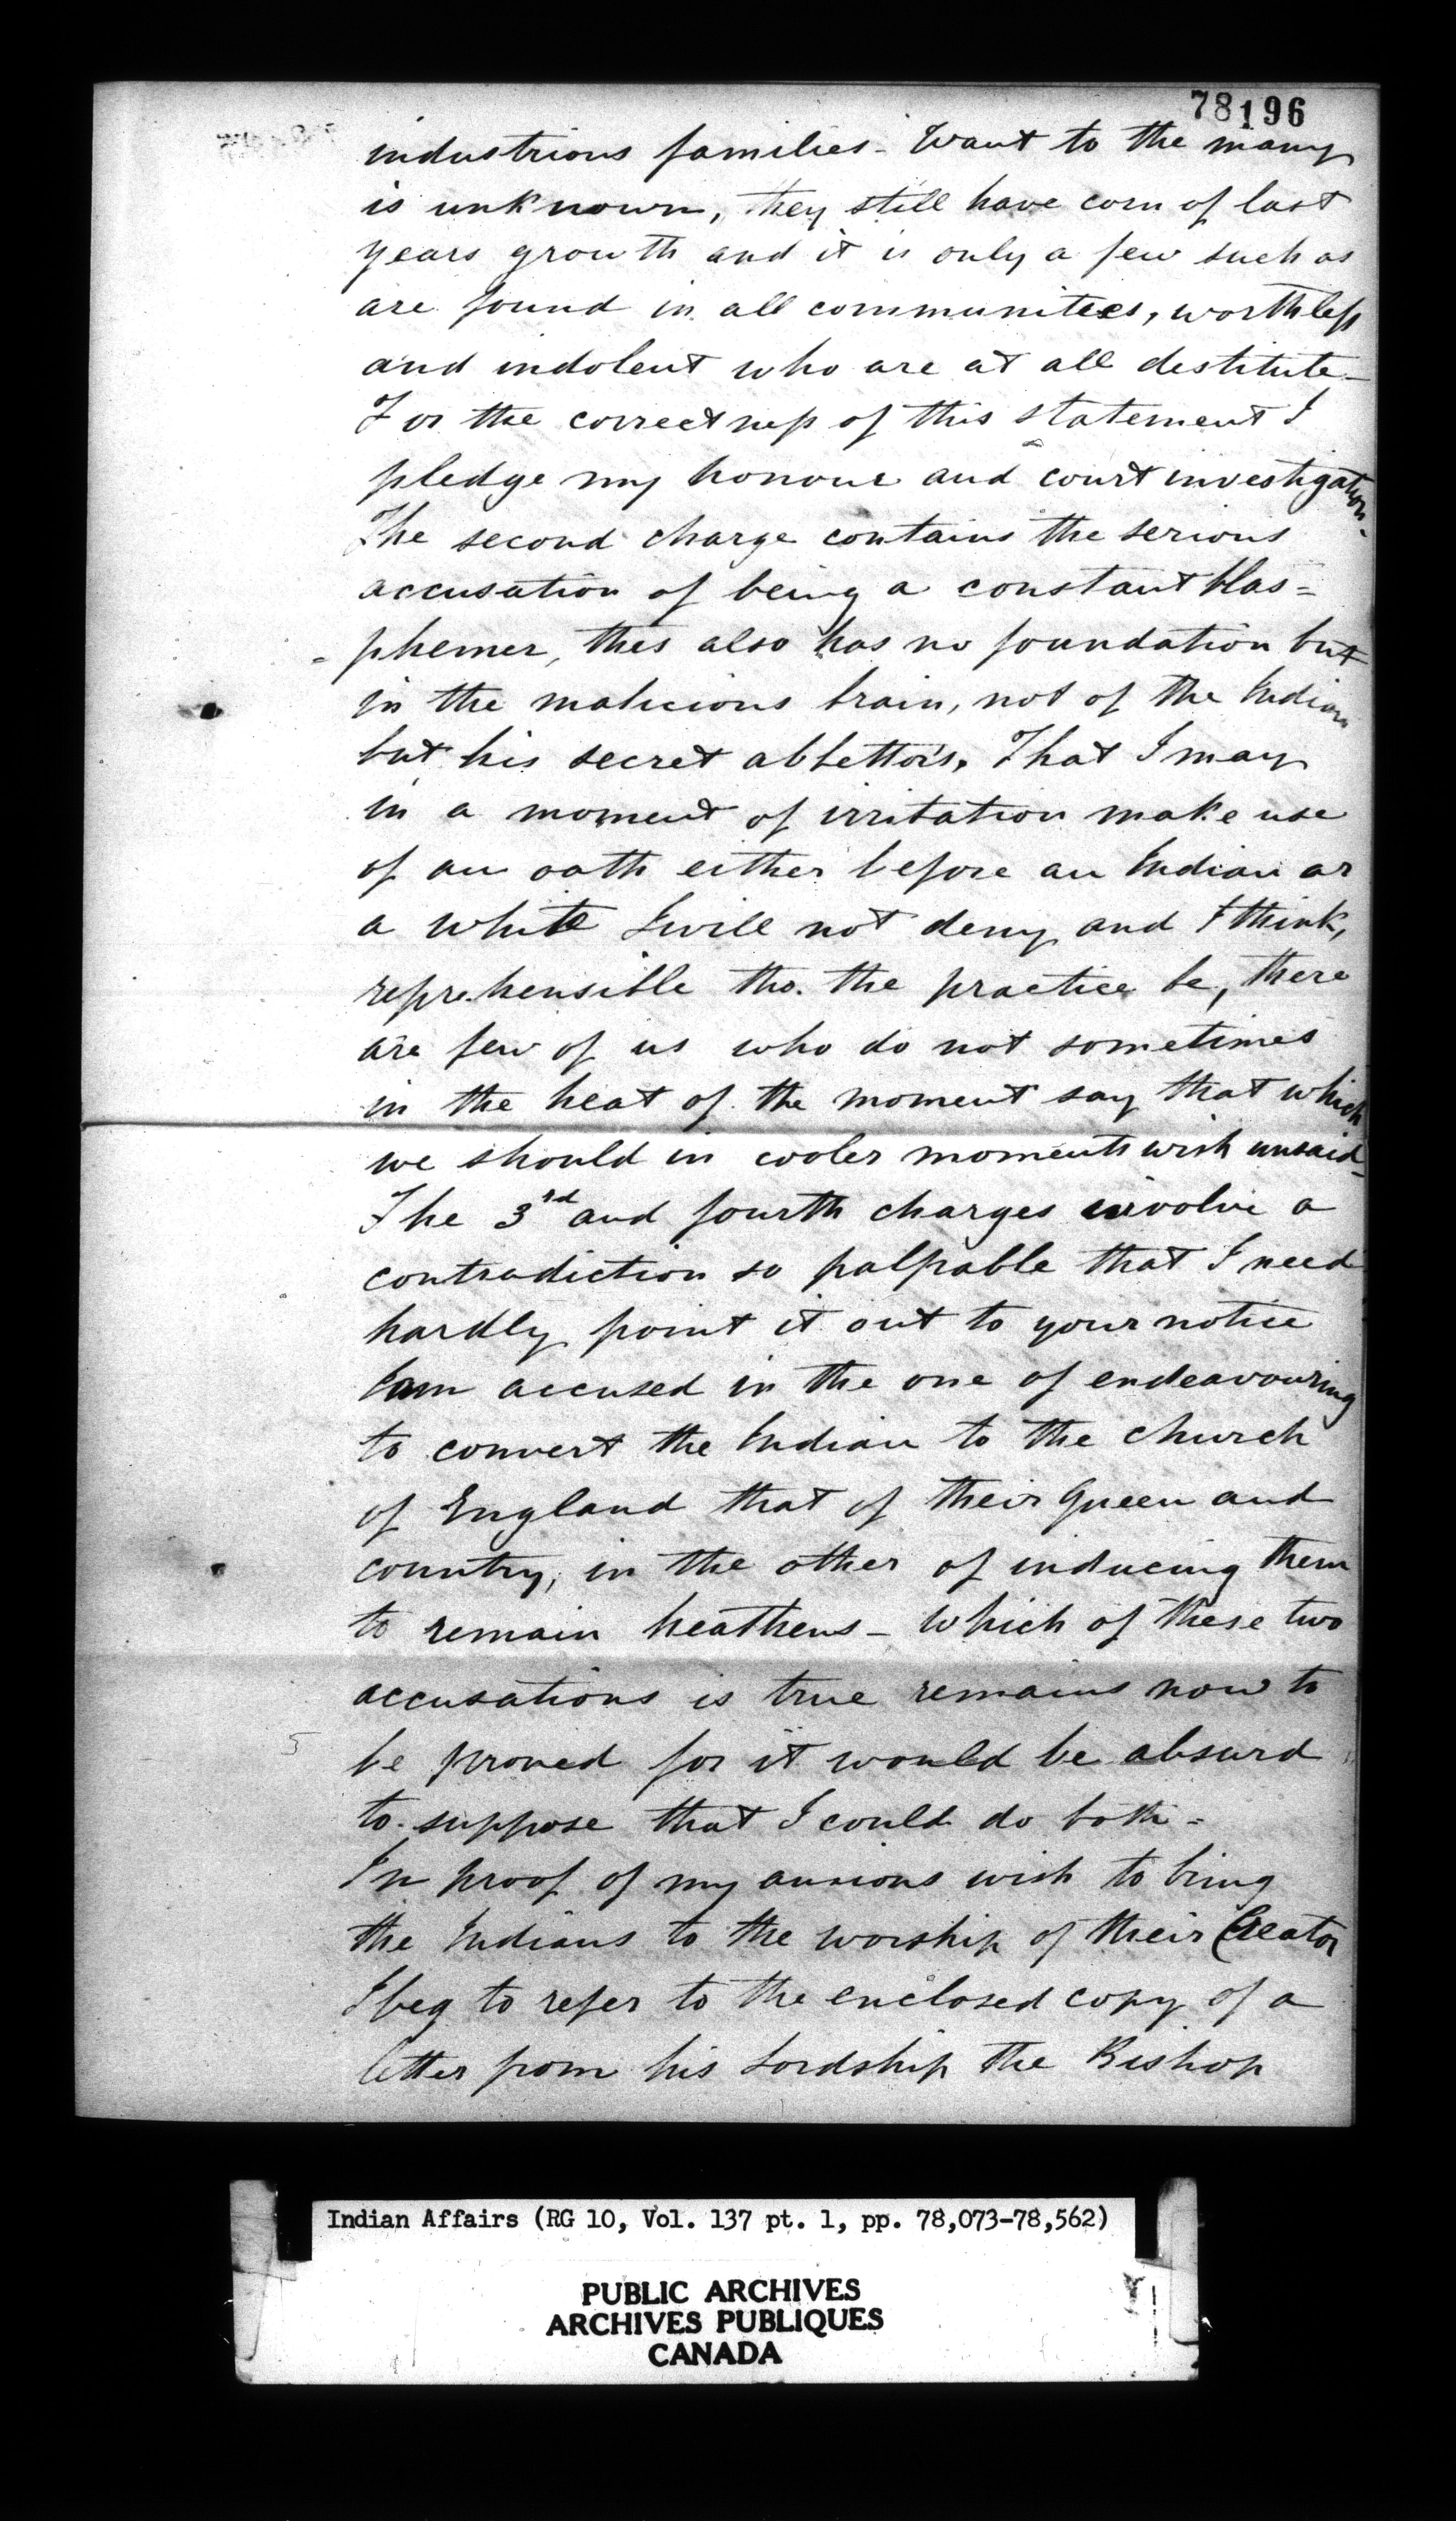 78196
industrious families - Want to the many
is unknown, they still have corn of last
years growth and it is only a few such as
are found in all communitees, worthless
and indolent who are at all destitute -
For the correctness of this statement I
pledge my honour and court investigation.
The second charge contains the serious
accusation of being a constant blas=
=phemer, this also has no foundation but
in the malicious brain, not of the Indian
but his secret abbettors. That I may
in a moment of irritation make use
of an oath either before an Indian or
a white I will not deny and I think,
reprehensible tho. the practice be, there
are few of us who do not sometimes
in the heat of the moment say that which
we should in cooler moments wish unsaid -
The 3rd and fourth charges involve a
contradiction so palpable that I need
hardly point it out to your notice
I am accused in the one of endeavouring
to convert the Indian to the church
of England that of their Queen and
country, in the other of inducing them
to remain heathens - which of these two
accusations is true remains now to
be proved for it would be absurd
to suppose that I could do both -
In proof of my anxious wish to bring
the Indians to the worship of their Creator
I beg to refer to the enclosed copy of a
letter from his Lordship the Bishop
Indian Affairs (RG 10, Vol. 137 pt. 1, pp. 78,073-78,562)
PUBLIC ARCHIVES
ARCHIVES PUBLIQUES
CANADA